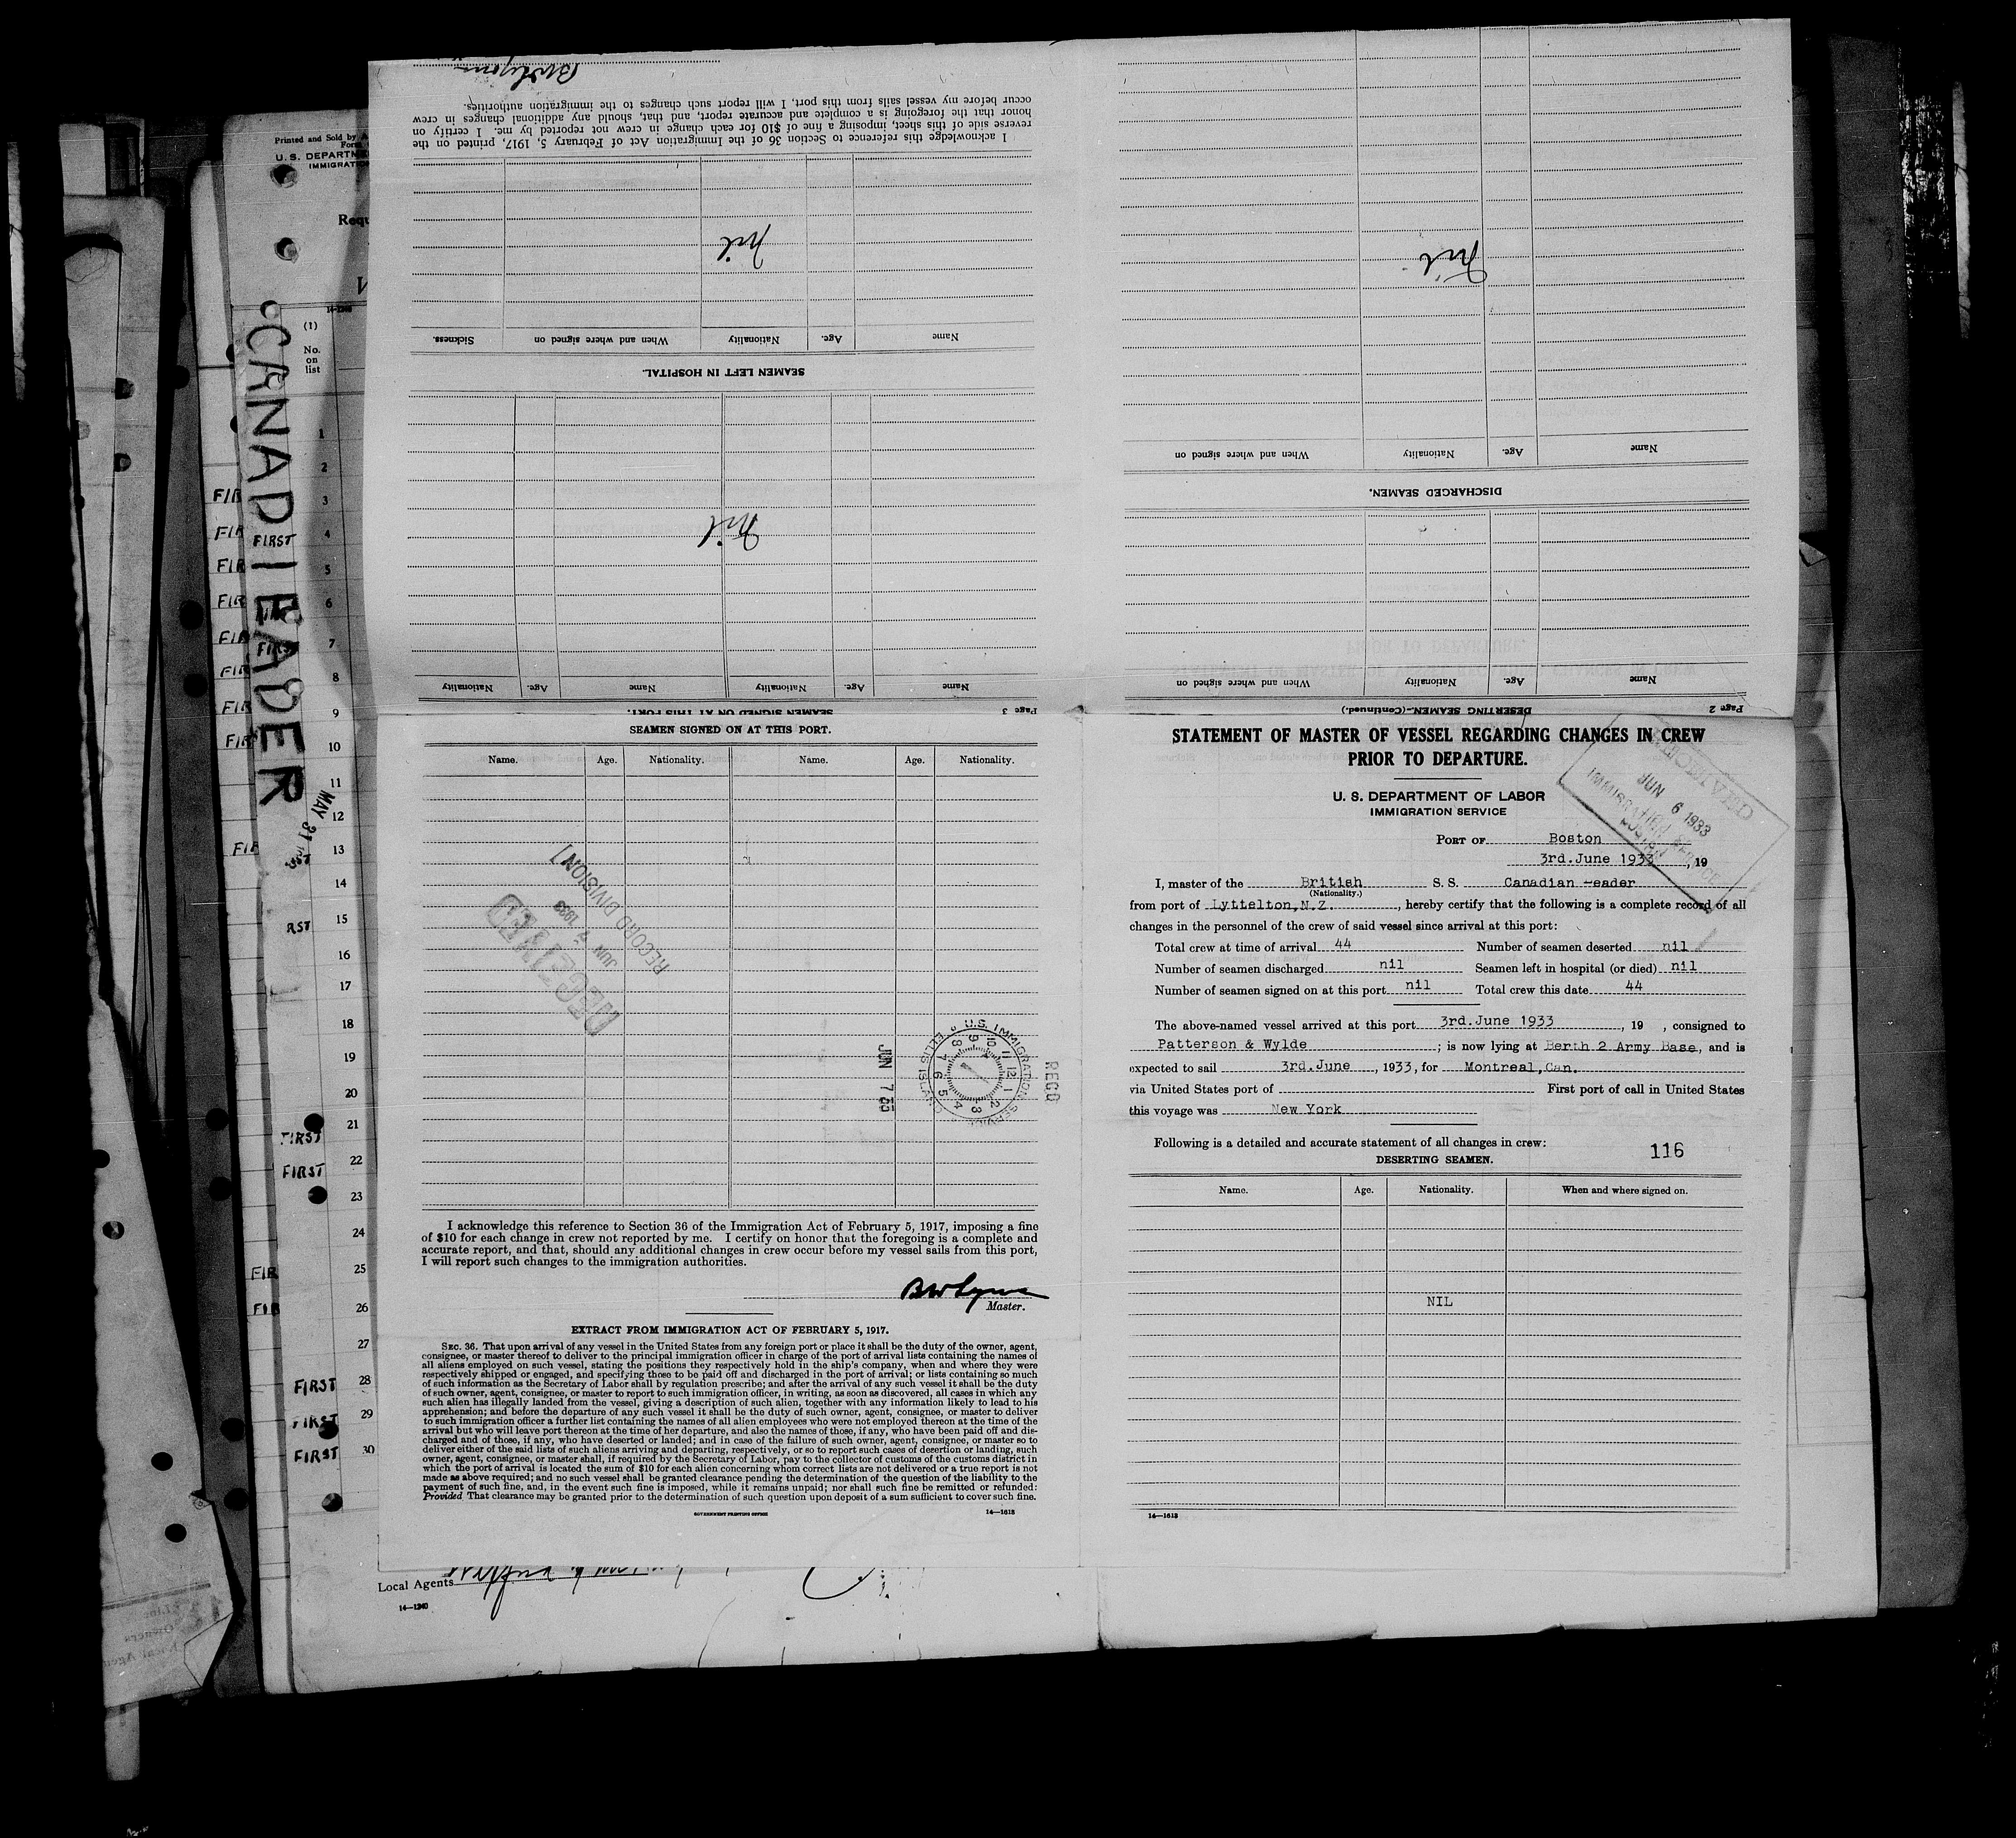 Printed and Sold by
U. S. DEPARTM
IMMIGRATIO
Requ
14-1240
(1)
No.
on
list
1
2
3
4
5
6
7
8
9
10
11
12
13
14
15
16
17
18
19
20
21
22
23
24
25
26
27
28
29
30
FIRST
FIRST
FIRST
FIRST
FIRST
FIRST
MAY 31
I acknowledge this reference to Section 36 of the Immigration Act of February 5, 1917, printed on the
reverse side of this sheet, imposing a fine of $10 for each change in crew not reported by me. I certify on
honor that the foregoing is a complete and accurate report, and that, should any additional changes in crew
occur before my vessel sails from this port, I will report such changes to the immigration authorities.
SEAMEN LEFT IN HOSPITAL.
Name Age. Nationality When and where signed on Sickness.
nil
Page 3 SEAMEN SIGNED ON AT THIS PORT.
Name Age. Nationality Name Age. Nationality
nil
Page 2 DESERTING SEAMEN.—(Continued.)
Name Age. Nationality When and where signed on
DISCHARGED SEAMEN.
Name Age. Nationality When and where signed on
nil
SEAMEN SIGNED ON AT THIS PORT.
Name. Age. Nationality. Name. Age. Nationality.
RECEIVED
JUN 7 1933
RECORD DIVISION
U.S. IMMIGRATION SERVICE
ELLIS ISLAND
JUN 7 33
RECD
I acknowledge this reference to Section 36 of the Immigration Act of February 5, 1917, imposing a fine
of $10 for each change in crew not reported by me. I certify on honor that the foregoing is a complete and
accurate report, and that, should any additional changes in crew occur before my vessel sails from this port,
I will report such changes to the immigration authorities.
Master.
EXTRACT FROM IMMIGRATION ACT OF FEBRUARY 5, 1917.
SEC. 36. That upon arrival of any vessel in the United States from any foreign port or place it shall be the duty of the owner, agent,
consignee, or master thereof to deliver to the principal immigration officer in charge of the port of arrival lists containing the names of
all aliens employed on such vessel, stating the positions they respectively hold in the ship's company, when and where they were
respectively shipped or engaged, and specifying those to be paid off and discharged in the port of arrival; or lists containing so much
of such information as the Secretary of Labor shall by regulation prescribe; and after the arrival of any such vessel it shall be the duty
of such owner, agent, consignee, or master to report to such immigration officer, in writing, as soon as discovered, all cases in which any
such alien has illegally landed from the vessel, giving a description of such alien, together with any information likely to lead to his
apprehension; and before the departure of any such vessel it shall be the duty of such owner, agent, consignee, or master to deliver
to such immigration officer a further list containing the names of all alien employees who were not employed thereon at the time of the
arrival but who will leave port thereon at the time of her departure, and also the names of those, if any, who have been paid off and dis-
charged and of those, if any, who have deserted or landed; and in case of the failure of such owner, agent, consignee, or master so to
deliver either of the said lists of such aliens arriving and departing, respectively, or so to report such cases of desertion or landing, such
owner, agent, consignee, or master shall, if required by the Secretary of Labor, pay to the collector of customs of the customs district in
which the port of arrival is located the sum of $10 for each alien concerning whom correct lists are not delivered or a true report is not
made as above required; and no such vessel shall be granted clearance pending the determination of the question of the liability to the
payment of such fine, and, in the event such fine is imposed, while it remains unpaid; nor shall such fine be remitted or refunded:
Provided That clearance may be granted prior to the determination of such question upon deposit of a sum sufficient to cover such fine.
GOVERNMENT PRINTING OFFICE 14—1613
STATEMENT OF MASTER OF VESSEL REGARDING CHANGES IN CREW
PRIOR TO DEPARTURE.
U. S. DEPARTMENT OF LABOR
IMMIGRATION SERVICE
JUN 6 1933
PORT OF Boston
3rd.June 1933, 19
I, master of the British S. S. Canadian eader
(Nationality.)
from port of Lyttelton,N.Z., hereby certify that the following is a complete record of all
changes in the personnel of the crew of said vessel since arrival at this port:
Total crew at time of arrival 44 Number of seamen deserted nil
Number of seamen discharged nil Seamen left in hospital (or died) nil
Number of seamen signed on at this port nil Total crew this date 44
The above-named vessel arrived at this port 3rd.June 1933, 19 , consigned to
Patterson & Wylde; is now lying at Berth 2 Army Base, and is
expected to sail 3rd.June, 1933, for Montreal,Can.
via United States port of First port of call in United States
this voyage was New York
Following is a detailed and accurate statement of all changes in crew:
116
DESERTING SEAMEN.
Name. Age. Nationality. When and where signed on.
NIL
14—1613
Local Agents
14—1240